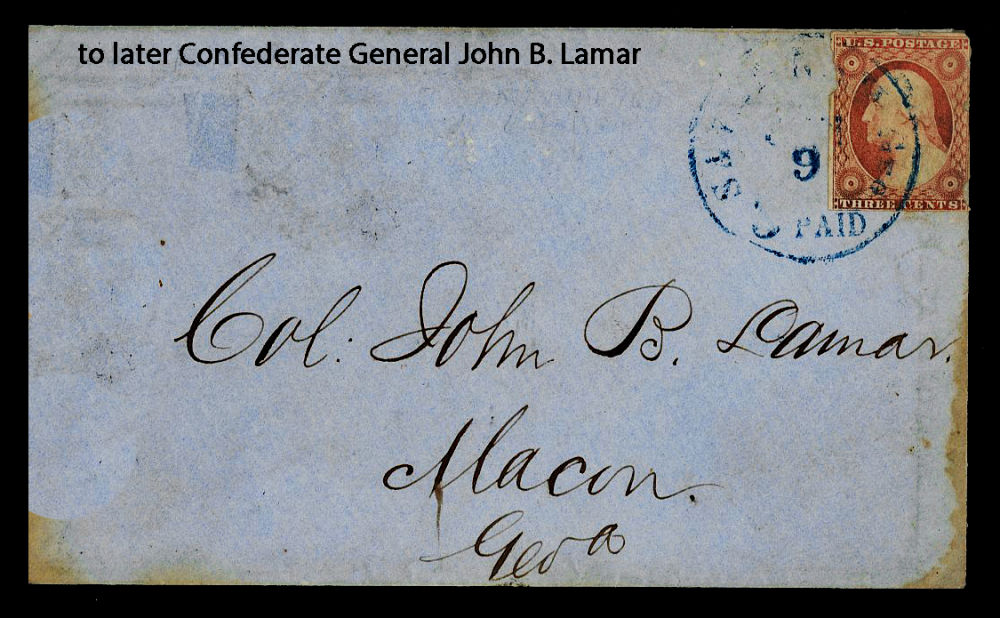 to later Confederate General John B. Lamar
U.S. POSTAGE
9
PAID
THREE CENTS
Col. John B. Lamar.
Macon.
Geoa